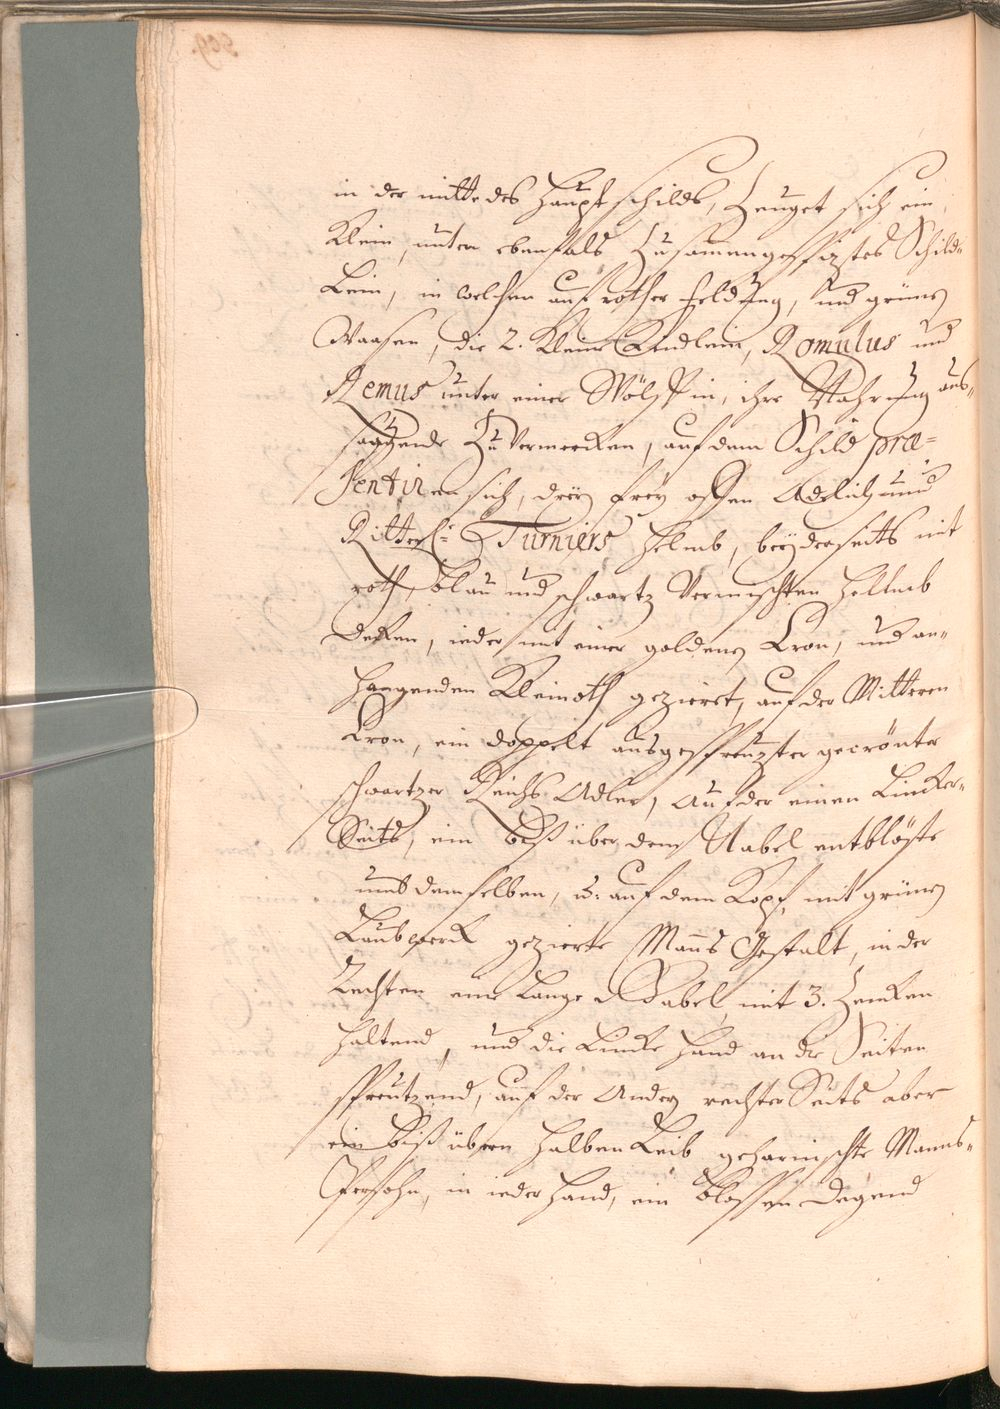 in der mitte des Haupt schilds, Zeuget sich ein
Klein, unten ebenfals Zusamengespiztes Schild-
Lein, in welchen auf rother Feldung, und grünen
Waasen, die 2. kleine Kindlein, Romulus und
Remus unter einer Wölffin, ihre Nahrung aus-
saggende Zu Vermercken, auf dem Schild præ-
sentiren sich, dreÿ freÿ offen Adelich und
Ritterl: Turniers Helmb, beÿderseits mit
roth, blau und schwartz Vermischten Helmb
decken, ieder mit einer goldenen Cron, und an-
hangenden Kleinoth gezieret, auf der Mitteren
Cron, ein doppelt ausgespreutzter gecrönter
schwartzer Reichs Adler, Auf der einen Lincker-
Seits, ein biß über dem Nabel entblöste
umb demselben, u: auf dem Kopf, mit grünen
Laubwerck gezierte Manns Gestalt, in der
Rechten eine Lange Gabel mit 3. Zincken
haltend, und die Lincke Hand an die Seiten
spreutzend, auf der Andern rechter Seits aber
ein biß übern halben Leib geharnischte Manns-
Persohn, in ieder Hand, ein blossen Degend
969.